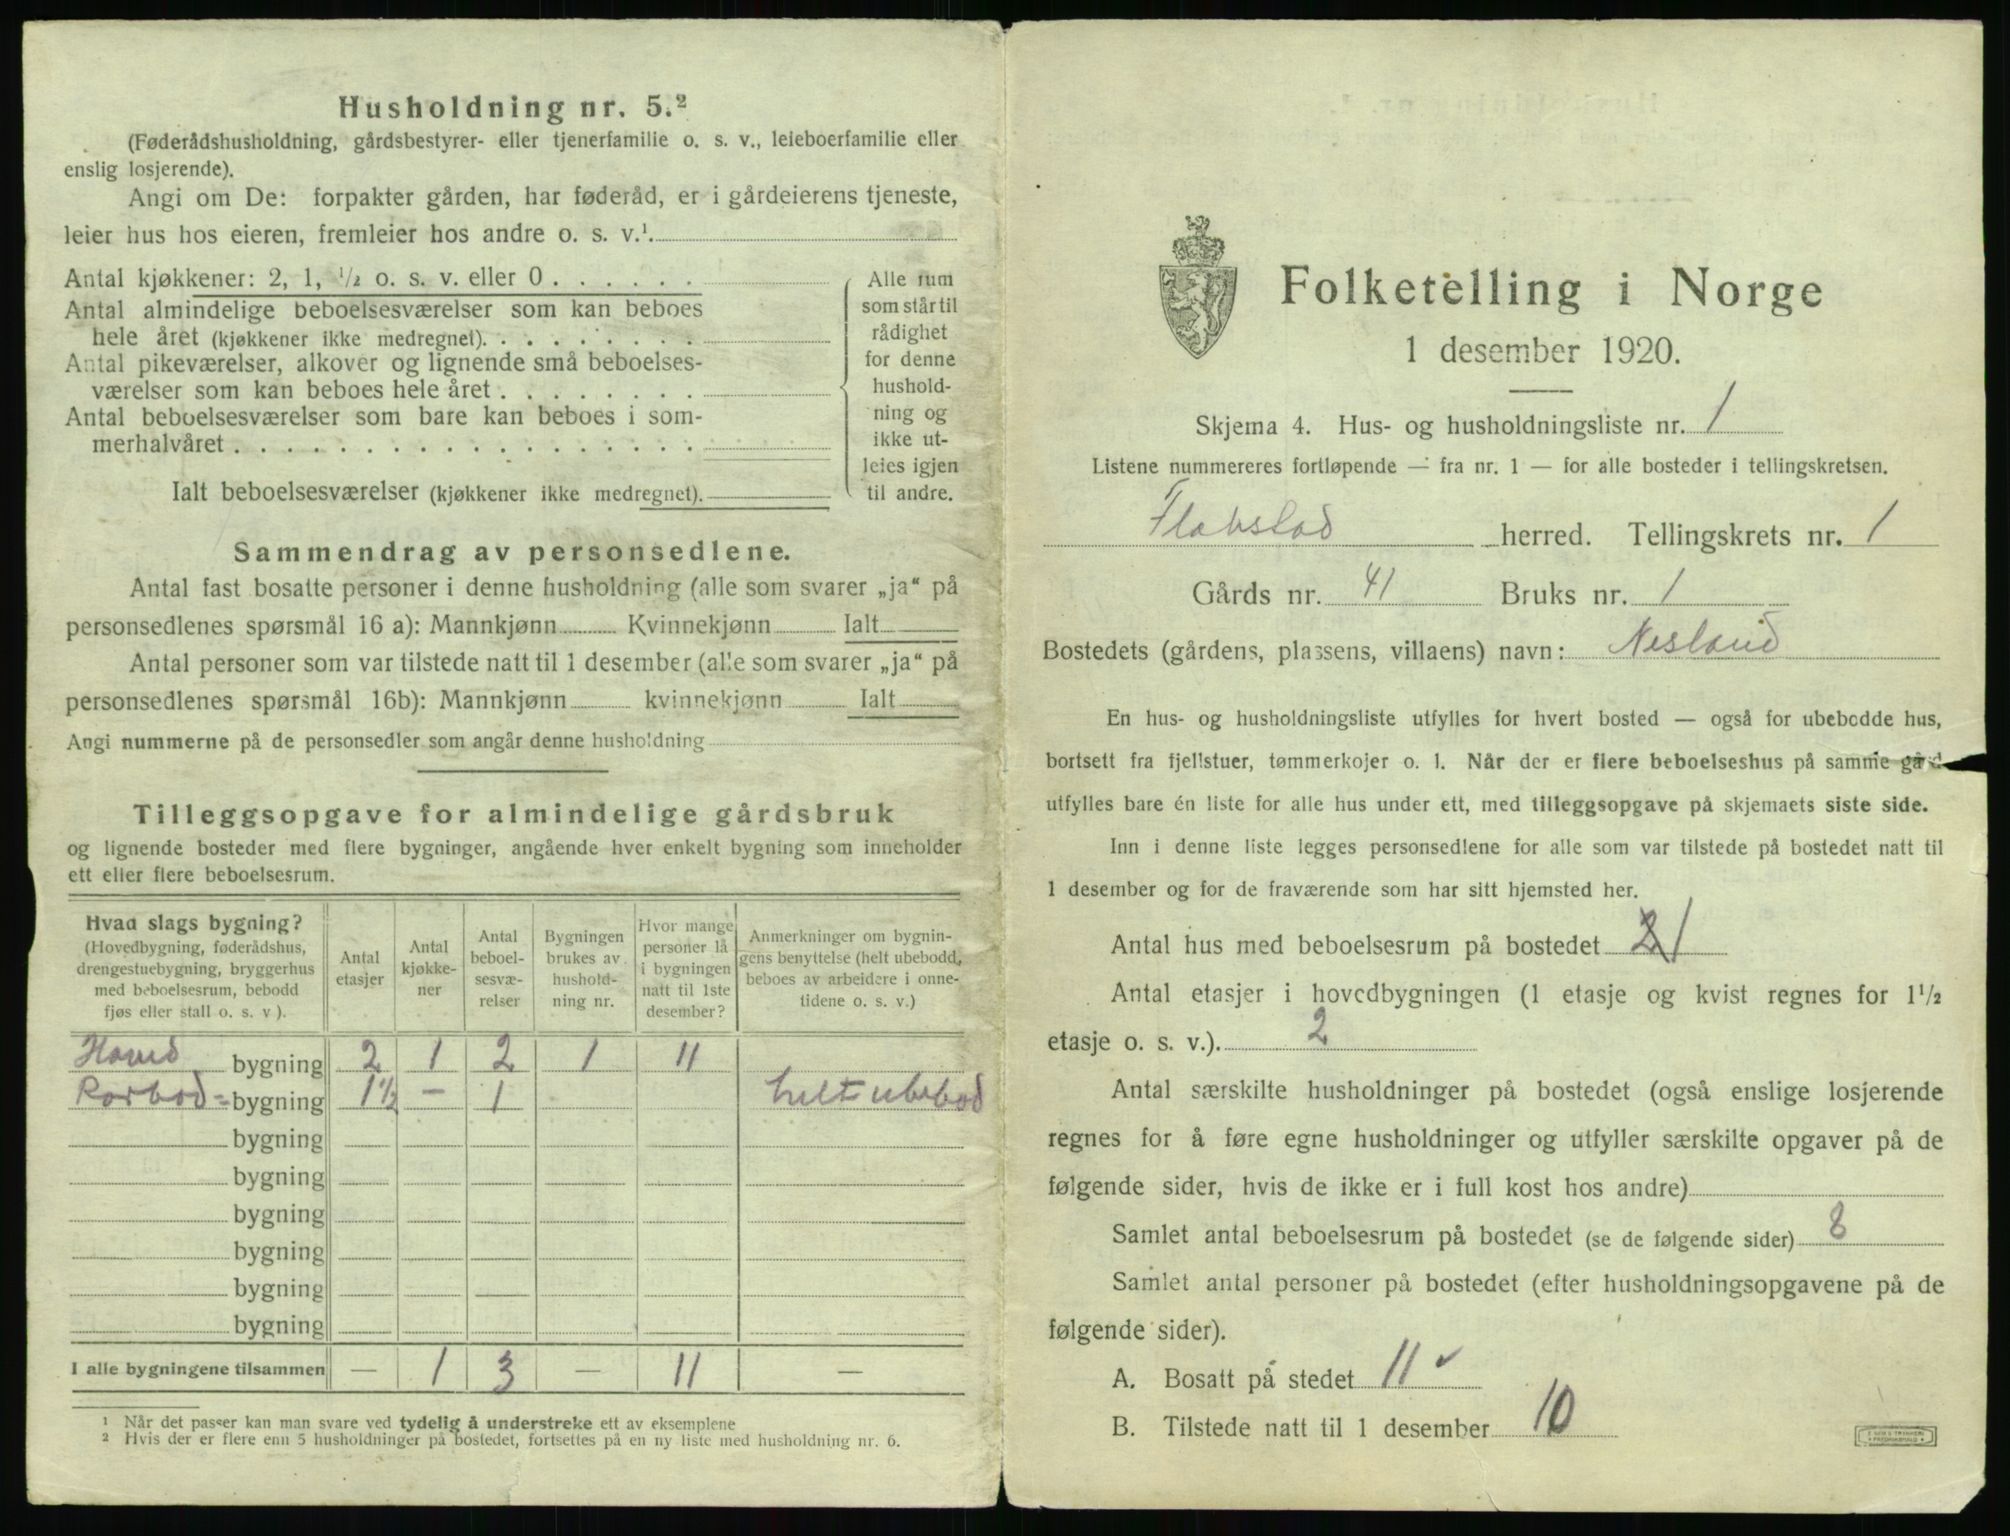 Husholdning nr. 5.²
(Føderådshusholdning, gårdsbestyrer- eller tjenerfamilie o. s. v., leieboerfamilie eller
enslig losjerende).
Angi om De: forpakter gården, har føderåd, er i gårdeierens tjeneste,
leier hus hos eieren, fremleier hos andre o. s. v.¹.
Antal kjøkkener: 2, 1, ½ o. s. v. eller 0 . . . . . .
Antal almindelige beboelsesværelser som kan beboes
hele året (kjøkkener ikke medregnet). . . . . . . . .
Antal pikeværelser, alkover og lignende små beboelses-
værelser som kan beboes hele året . . . . . . . .
Antal beboelsesværelser som bare kan beboes i som-
merhalvåret . . . . . . . . . . . . . . . . . .
Ialt beboelsesværelser (kjøkkener ikke medregnet).
Alle rum
som står til
rådighet
for denne
hushold-
ning og
ikke ut-
leies igjen
til andre.
Sammendrag av personsedlene.
Antal fast bosatte personer i denne husholdning (alle som svarer „ja“ på
personsedlenes spørsmål 16 a): Mannkjønn Kvinnekjønn Ialt
Antal personer som var tilstede natt til 1 desember (alle som svarer „ja“ på
personsedlenes spørsmål 16b): Mannkjønn kvinnekjønn Ialt
Angi nummerne på de personsedler som angår denne husholdning
Tilleggsopgave for almindelige gårdsbruk
og lignende bosteder med flere bygninger, angående hver enkelt bygning som inneholder
ett eller flere beboelsesrum.
Hvad slags bygning?
(Hovedbygning, føderådshus,
drengestuebygning, bryggerhus
med beboelsesrum, bebodd
fjøs eller stall o. s. v ).
Antal
etasjer
Antal
kjøkke-
ner
Antal
beboel-
sesvæ-
relser
Bygningen
brukes av
hushold-
ning nr.
Hvor mange
personer lå
i bygningen
natt til 1ste
desember?
Anmerkninger om bygnin-
gens benyttelse (helt ubebodd,
beboes av arbeidere i onne-
tidene o. s. v.)
Hoved bygning 2 1 2 1 11
Rorbod= bygning 1½ — 1 helt ubebod
bygning
bygning
bygning
bygning
bygning
bygning
I alle bygningene tilsammen — 1 3 — 11 —
¹ Når det passer kan man svare ved tydelig å understreke ett av eksemplene
² Hvis der er flere enn 5 husholdninger på bostedet, fortsettes på en ny liste med husholdning nr. 6.
Folketelling i Norge
1 desember 1920.
Skjema 4. Hus- og husholdningsliste nr. 1
Listene nummereres fortløpende — fra nr. 1 — for alle bosteder i tellingskretsen.
Flakstad herred. Tellingskrets nr. 1
Gårds nr. 41 Bruks nr. 1
Bostedets (gårdens, plassens, villaens) navn: Nesland
En hus- og husholdningsliste utfylles for hvert bosted — også for ubebodde hus,
bortsett fra fjellstuer, tømmerkojer o. l. Når der er flere beboelseshus på samme gård
utfylles bare én liste for alle hus under ett, med tilleggsopgave på skjemaets siste side.
Inn i denne liste legges personsedlene for alle som var tilstede på bostedet natt til
1 desember og for de fraværende som har sitt hjemsted her.
Antal hus med beboelsesrum på bostedet 2 1
Antal etasjer i hovedbygningen (1 etasje og kvist regnes for 1½
etasje o. s. v.). 2
Antal særskilte husholdninger på bostedet (også enslige losjerende
regnes for å føre egne husholdninger og utfyller særskilte opgaver på de
følgende sider, hvis de ikke er i full kost hos andre)
Samlet antal beboelsesrum på bostedet (se de følgende sider) 8
Samlet antal personer på bostedet (efter husholdningsopgavene på de
følgende sider).
A. Bosatt på stedet 11 ✓
B. Tilstede natt til 1 desember 10